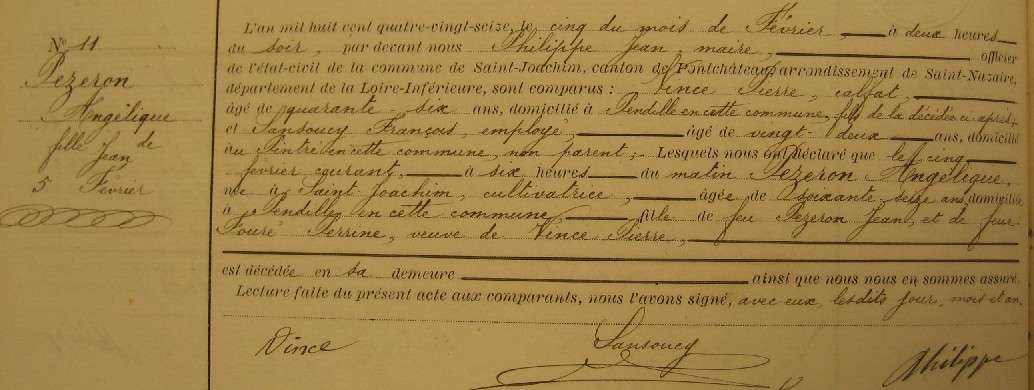 Nº 11
Pezeron
Angélique
fille de
Jean
5 Février
L'an mil huit cent quatre-vingt-seize, le cinq du mois de Février, à deux heures
du soir, par devant nous Philippe Jean, maire, officier
de l'état-civil de la commune de Saint-Joachim, canton de Pontchâteau, arrondissement de Saint-Nazaire,
département de la Loire-Inférieure, sont comparus : Vince Pierre, calfat,
âgé de quarante-six ans, domicilié à Pendille en cette commune, fils de la décédée ci-après;
et Sansoucy François, employé, âgé de vingt-deux ans, domicilié
au en cette commune, non parent; Lesquels nous ont déclaré que le cinq
février courant, à six heures du matin Pezeron Angélique,
née à Saint-Joachim, cultivatrice, âgée de soixante-seize ans, domiciliée
à Pendille en cette commune, fille de feu Pezeron Jean, et de feue
Pouré Perrine, veuve de Vince Pierre,
est décédée en sa demeure ainsi que nous nous en sommes assuré.
Lecture faite du présent acte aux comparants, nous l'avons signé, avec eux, lesdits jour, mois et an.
Vince Sansoucy Philippe